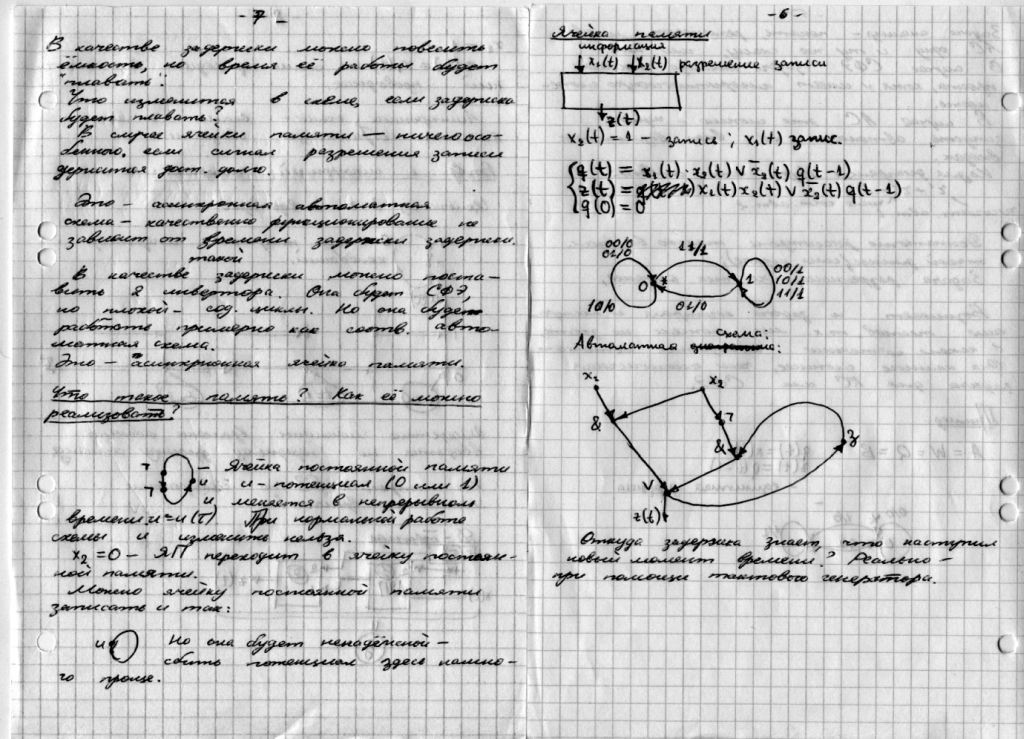 - 7 -
В качестве задержки можно повесить
ёмкость, но время её работы будет
"плавать".
Что изменится в схеме, если задержка
будет плавать?
В случае ячейки памяти — ничего осо-
бенного, если сигнал разрешения записи
держится дост. долго.
Это — асинхронная автоматная
схема — качественно функционирование не
зависит от времени задержки задержки.
такой
В качестве задержки можно поста-
вить 2 инвертора. Она будет СФЭ,
но плохой — сод. циклы. Но она будет
работать примерно как соотв. авто-
матная схема.
Это — асинхронная ячейка памяти.
Что такое память? Как её можно
реализовать?
— Ячейка постоянной памяти
и - потенциал (0 или 1)
и меняется в непрерывном
времени u=u(τ) При нормальной работе
схемы и изменить нельзя.
x₂=0 — ЯП переходит в ячейку постоян-
ной памяти.
Можно ячейку постоянной памяти
записать и так:
Но она будет ненадёжной —
сбить потенциал здесь намно-
го проще.
- 6 -
Ячейка памяти
информация
x₁(t) x₂(t) разрешение записи
z(t)
x₂(t) = 1 — запись; x₁(t) запис.
q(t) = x₁(t)·x₂(t) ∨ x̄₂(t) q(t-1)
z(t) = x₁(t) x₂(t) ∨ x̄₂(t) q(t-1)
q(0) = 0
00/0
01/0
10/0
11/1
0
*
1
01/0
00/1
10/1
11/1
схема:
Автоматная
x₁
x₂
&
¬
&
з
∨
z(t)
Откуда задержка знает, что наступил
новый момент времени? Реально —
при помощи тактового генератора.